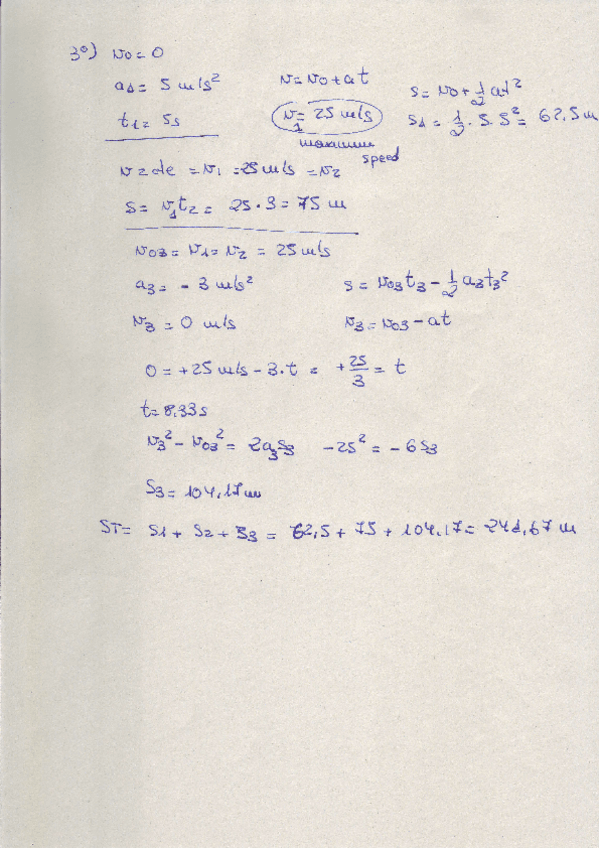 3º) v0 = 0
a1 = 5 m/s² v = v0 + at s = v0 + 1/2 at²
t1 = 5s v1 = 25 m/s s1 = 1/2 · 5 · 5² = 62,5 m
maximum speed
v2de = v1 = 25 m/s = v2
s = v1t2 = 25 · 3 = 75 m
v03 = v1 = v2 = 25 m/s
a3 = - 3 m/s² s = v03t3 - 1/2 a3t3²
v3 = 0 m/s v3 = v03 - at
0 = +25 m/s - 3·t = +25/3 = t
t = 8,33 s
v3² - v03² = 2a3s3 -25² = -6s3
s3 = 104,17 m
ST = s1 + s2 + s3 = 62,5 + 75 + 104,17 = 241,67 m